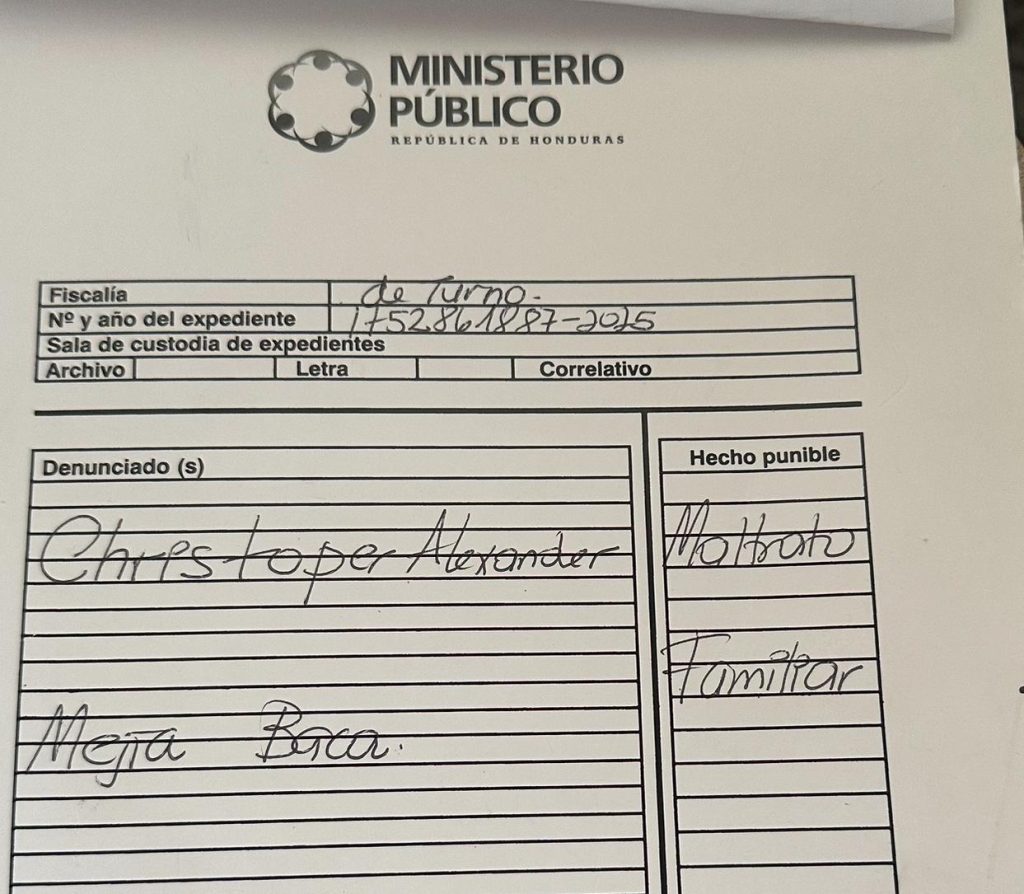 MINISTERIO
PÚBLICO
REPÚBLICA DE HONDURAS
Fiscalía de Turno.
Nº y año del expediente 1752861887-2025
Sala de custodia de expedientes
Archivo Letra Correlativo
Denunciado (s)
Christoper Alexander
Mejia Baca.
Hecho punible
Maltrato
Familiar